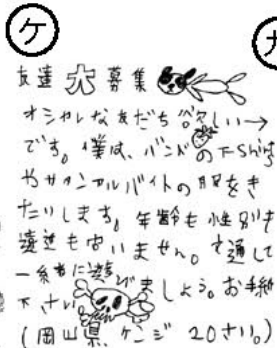 ケ
友達大募集
オシャレな友だち欲しい→
です。僕は、バンドのTShirt
やサイケデルバイトの服をき
たりします。年齢も性別も
遠近も問いません。文通して
一緒に遊びましょう。お手紙
下さい
(岡山県、ケンジ 20さい。)